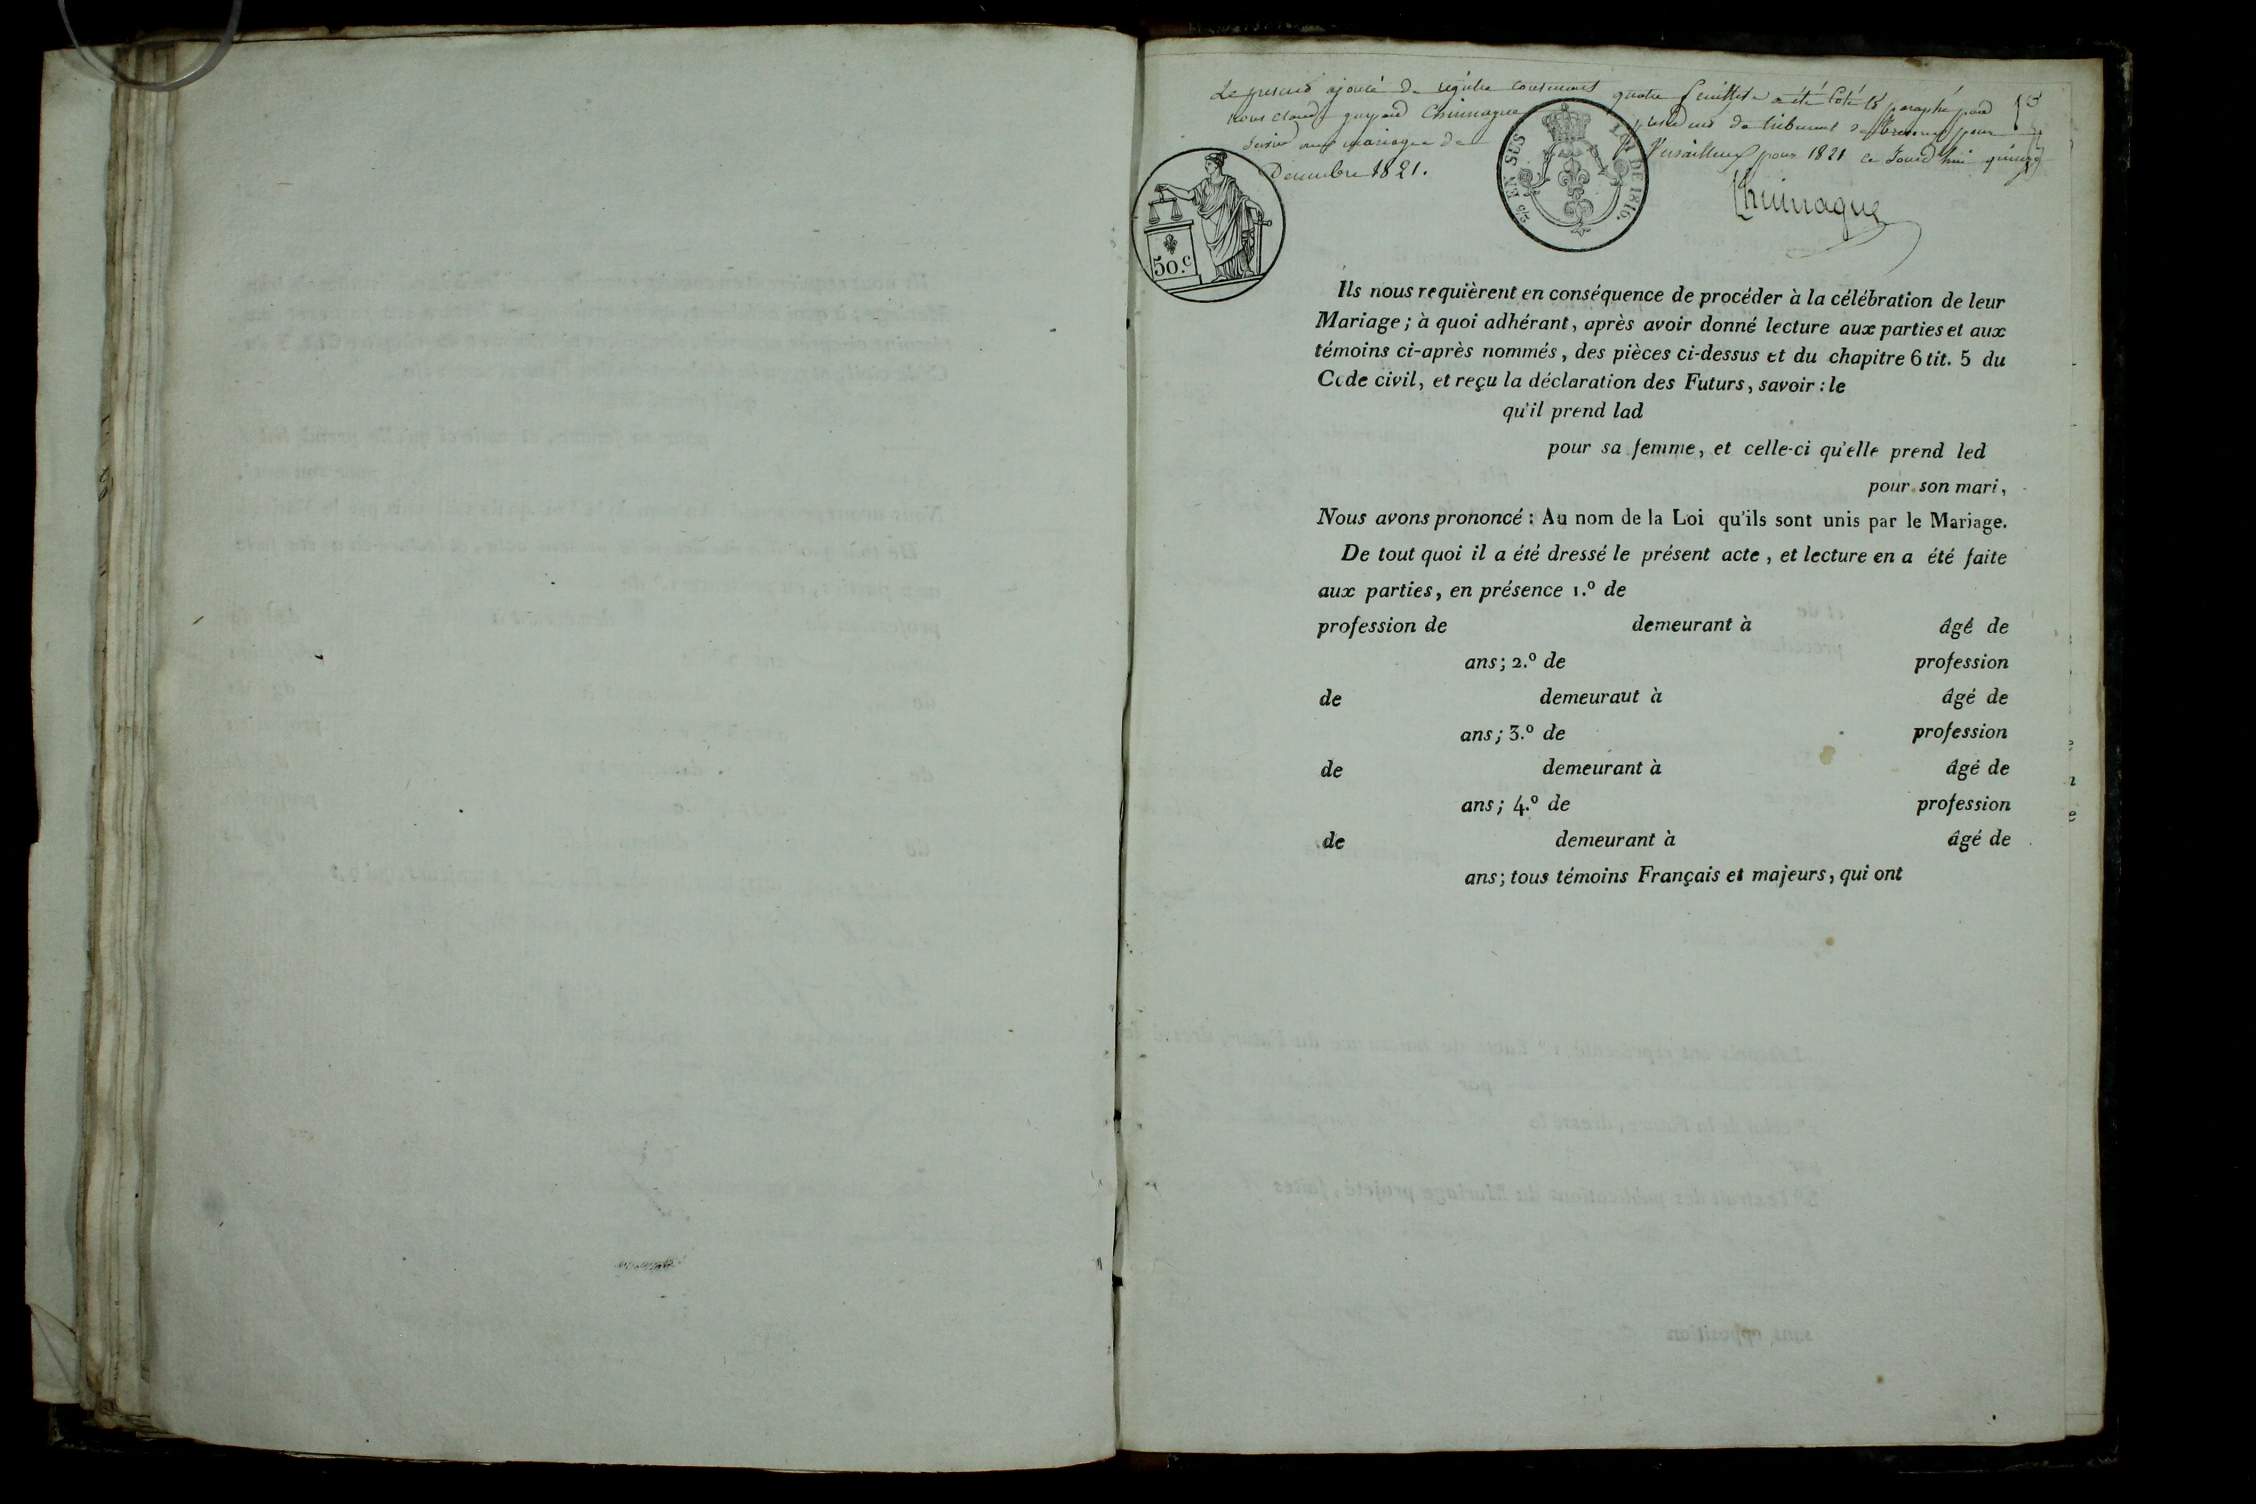 Le present ajouté de régistre contenant quatre feuillets a été coté & paraphé par
nous Claude gaspard Chiniaque président du tribunal de pour
servir aux mariages de pour 1821 ce jourd'hui quinze
Décembre 1821.
EN SUS
LOI DE 1816.
50.c
Ils nous requièrent en conséquence de procéder à la célébration de leur
Mariage; à quoi adhérant, après avoir donné lecture aux parties et aux
témoins ci-après nommés, des pièces ci-dessus et du chapitre 6 tit. 5 du
Code civil, et reçu la déclaration des Futurs, savoir : le
qu'il prend lad
pour sa femme, et celle-ci qu'elle prend led
pour son mari,
Nous avons prononcé : Au nom de la Loi qu'ils sont unis par le Mariage.
De tout quoi il a été dressé le présent acte, et lecture en a été faite
aux parties, en présence 1.º de
profession de demeurant à âgé de
ans; 2.º de profession
de demeuraut à âgé de
ans; 3.º de profession
de demeurant à âgé de
ans; 4.º de profession
de demeurant à âgé de
ans; tous témoins Français et majeurs, qui ont